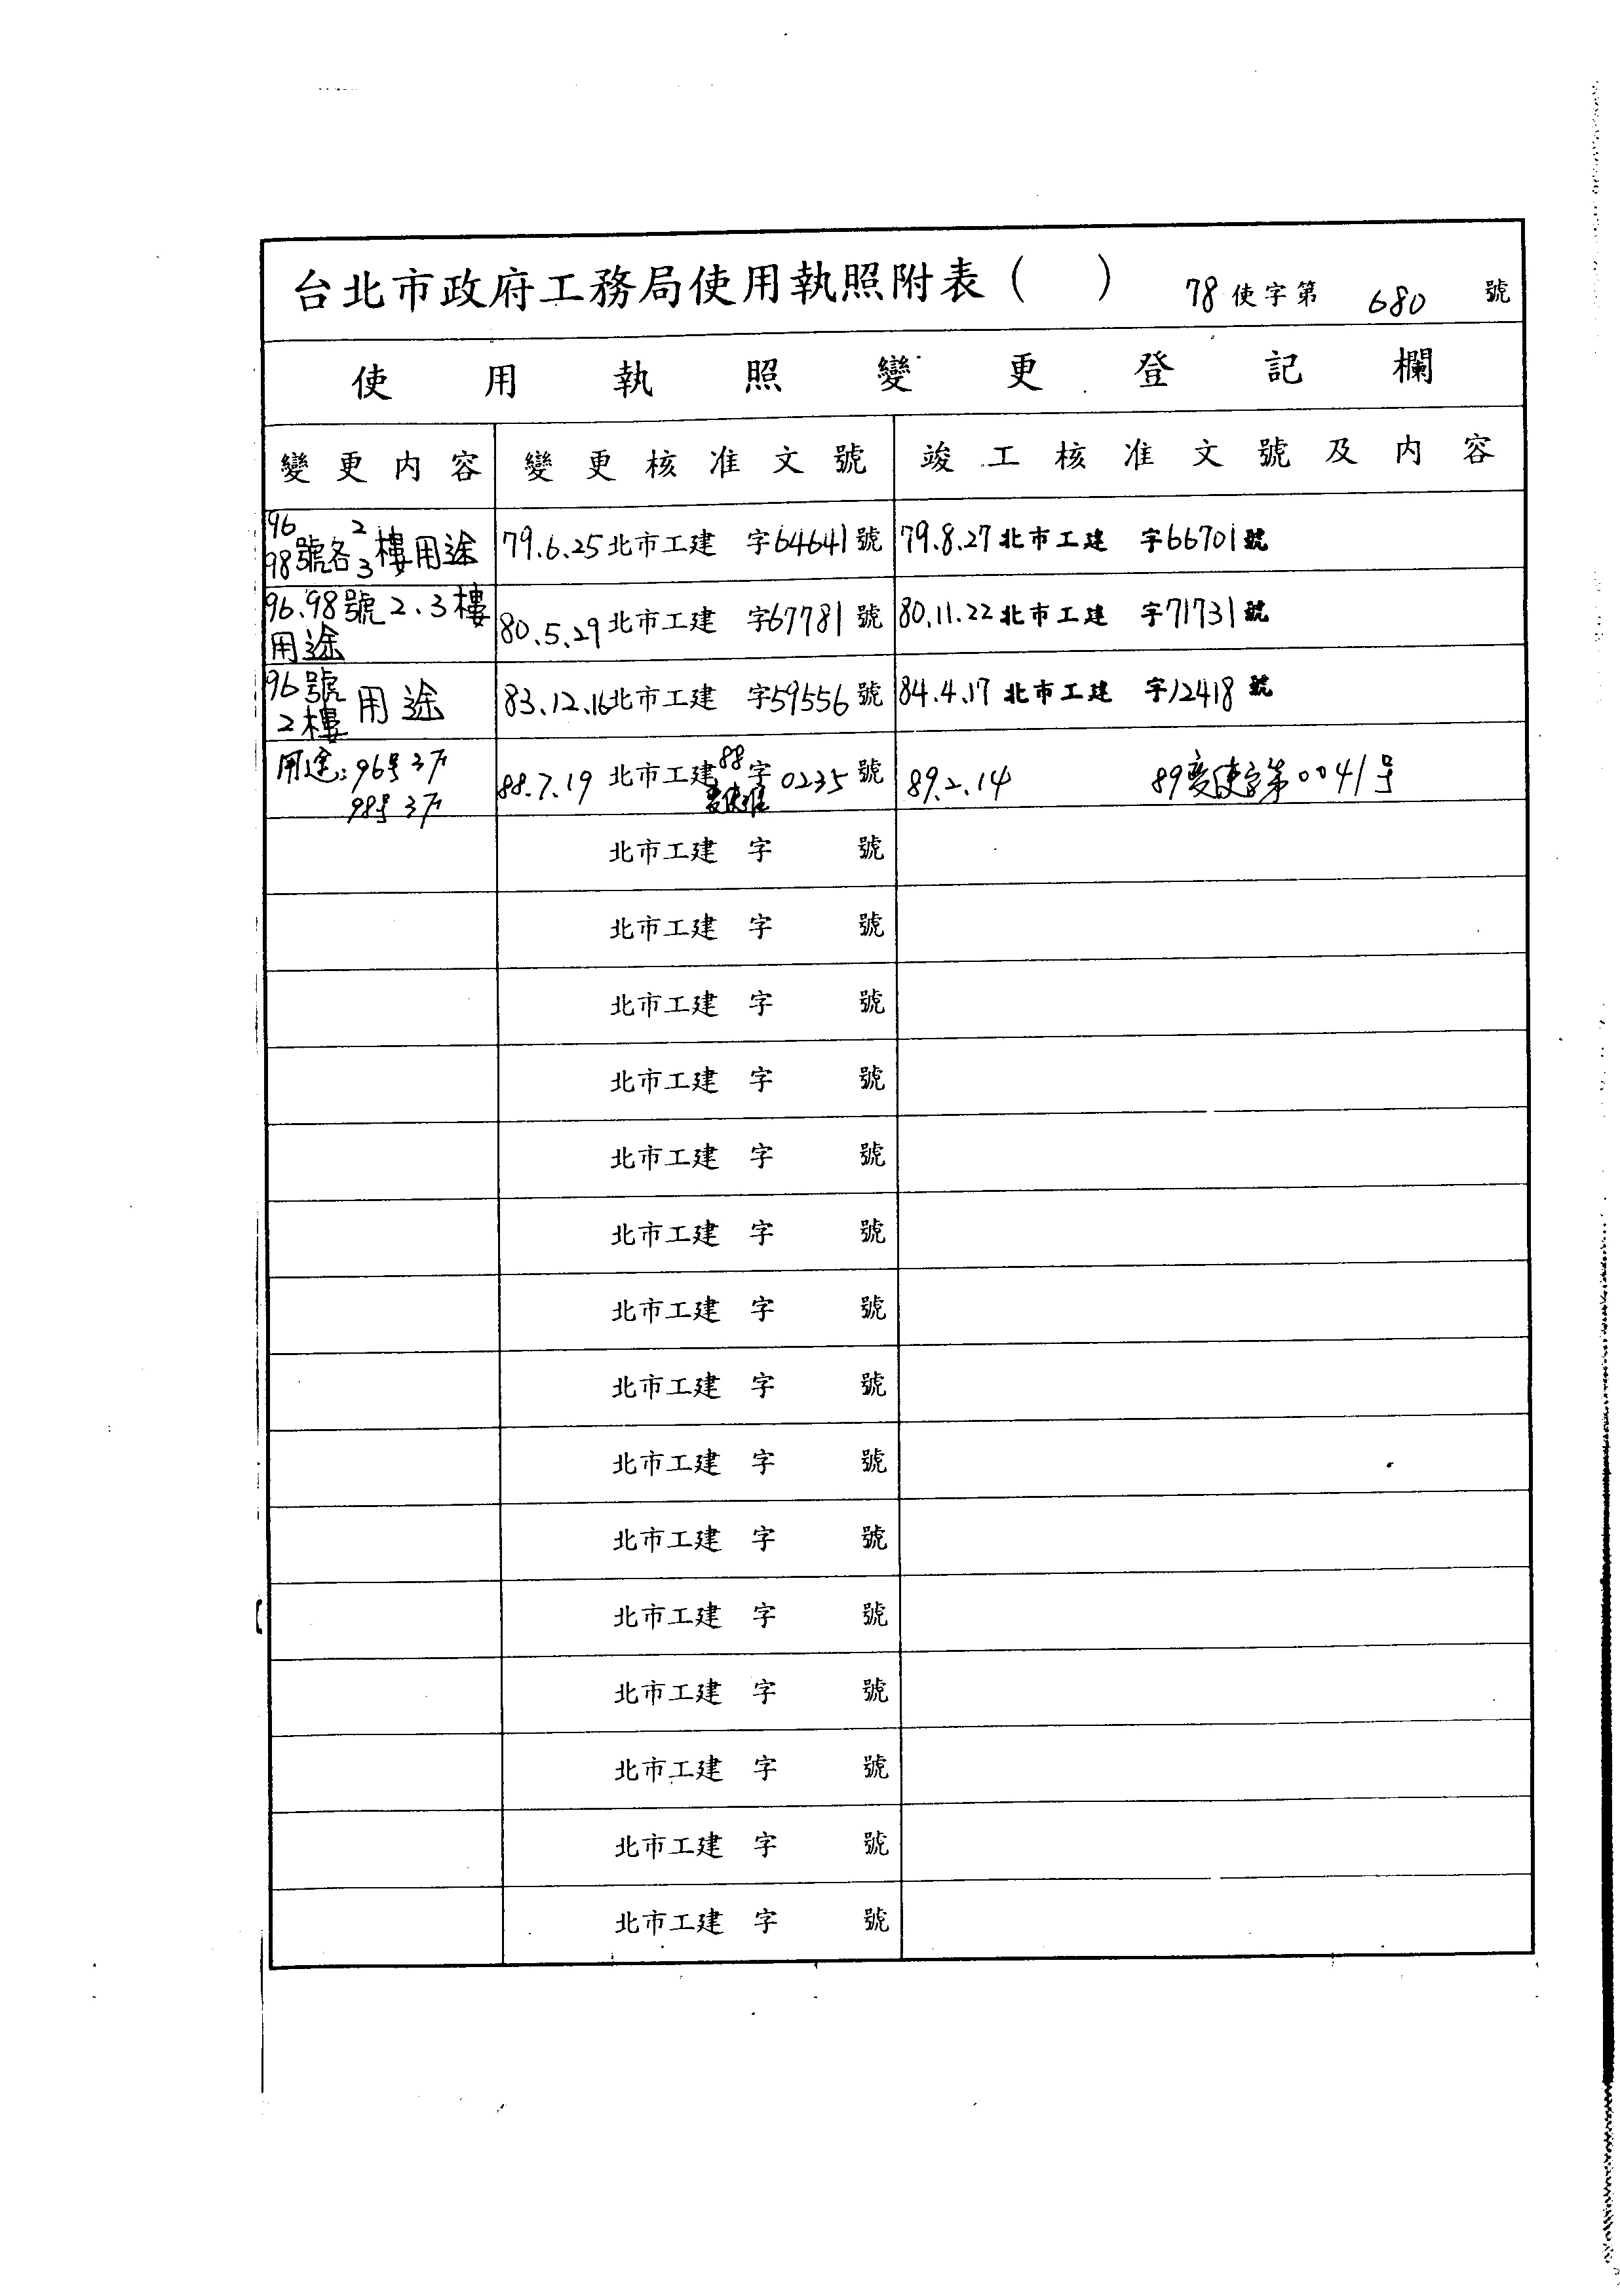 台北市政府工務局使用執照附表（　） 78使字第 680 號
使用執照變更登記欄
變更內容 變更核准文號 竣工核准文號及內容
96 2
98號各3樓用途 79.6.25北市工建 字64641號 79.8.27北市工建 字66701號
96.98號2.3樓
用途 80.5.29北市工建 字67781號 80.11.22北市工建 字71731號
96號
2樓 用途 83.12.16北市工建 字59556號 84.4.17北市工建 字12418號
用途:96号3F 88.7.19 北市工建88字0235號 89.2.14 89變使字第0041号
98号3F 變使准
北市工建 字 號
北市工建 字 號
北市工建 字 號
北市工建 字 號
北市工建 字 號
北市工建 字 號
北市工建 字 號
北市工建 字 號
北市工建 字 號
北市工建 字 號
北市工建 字 號
北市工建 字 號
北市工建 字 號
北市工建 字 號
北市工建 字 號